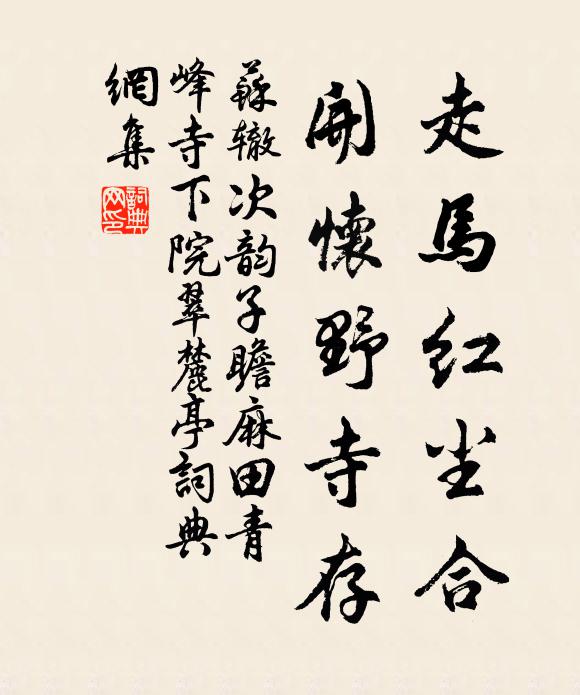 走馬红尘合
開懷野寺存
蘇辙次韵子瞻麻田青
峰寺下院翠麓亭詞典
網集
詞典
网印